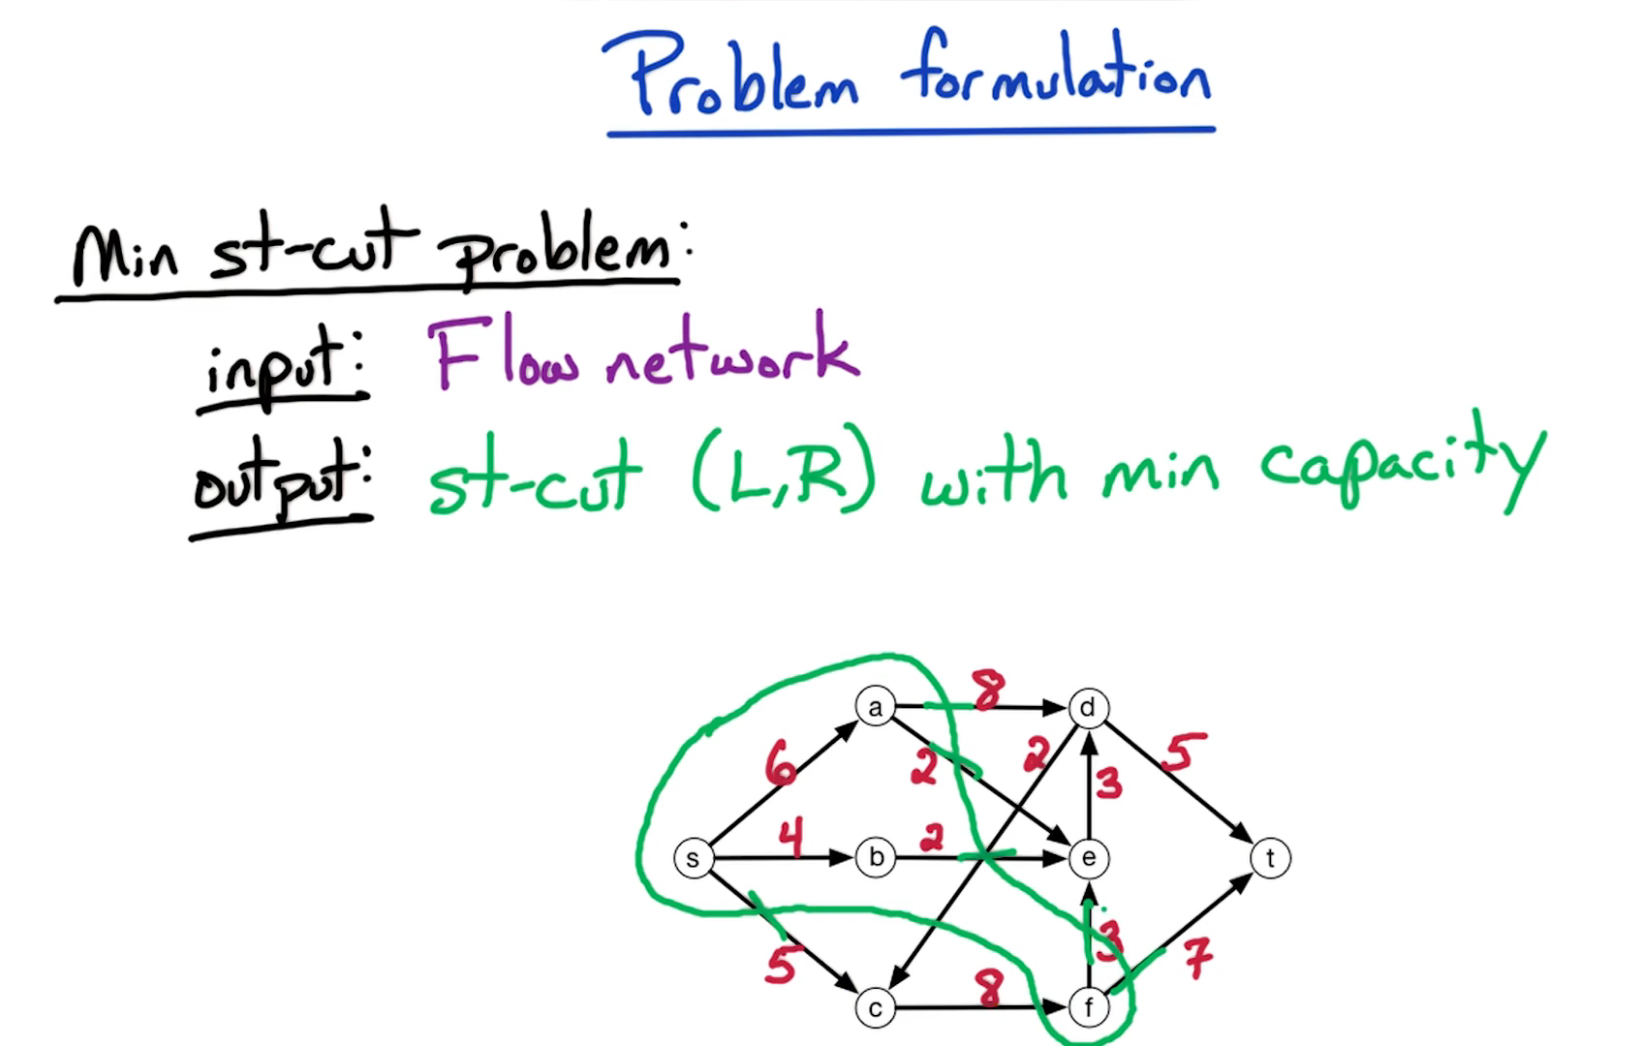 Problem formulation
Min st-cut problem:
input: Flow network
output: st-cut (L,R) with min capacity
a 8 d
6 2 2 3 5
s 4 b 2 e t
5 3 7
c 8 f